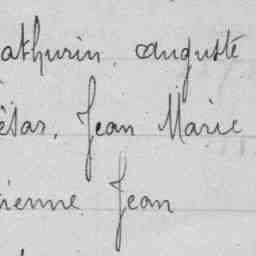 athurin. auguste
ésar. Jean Marie
ienne Jean